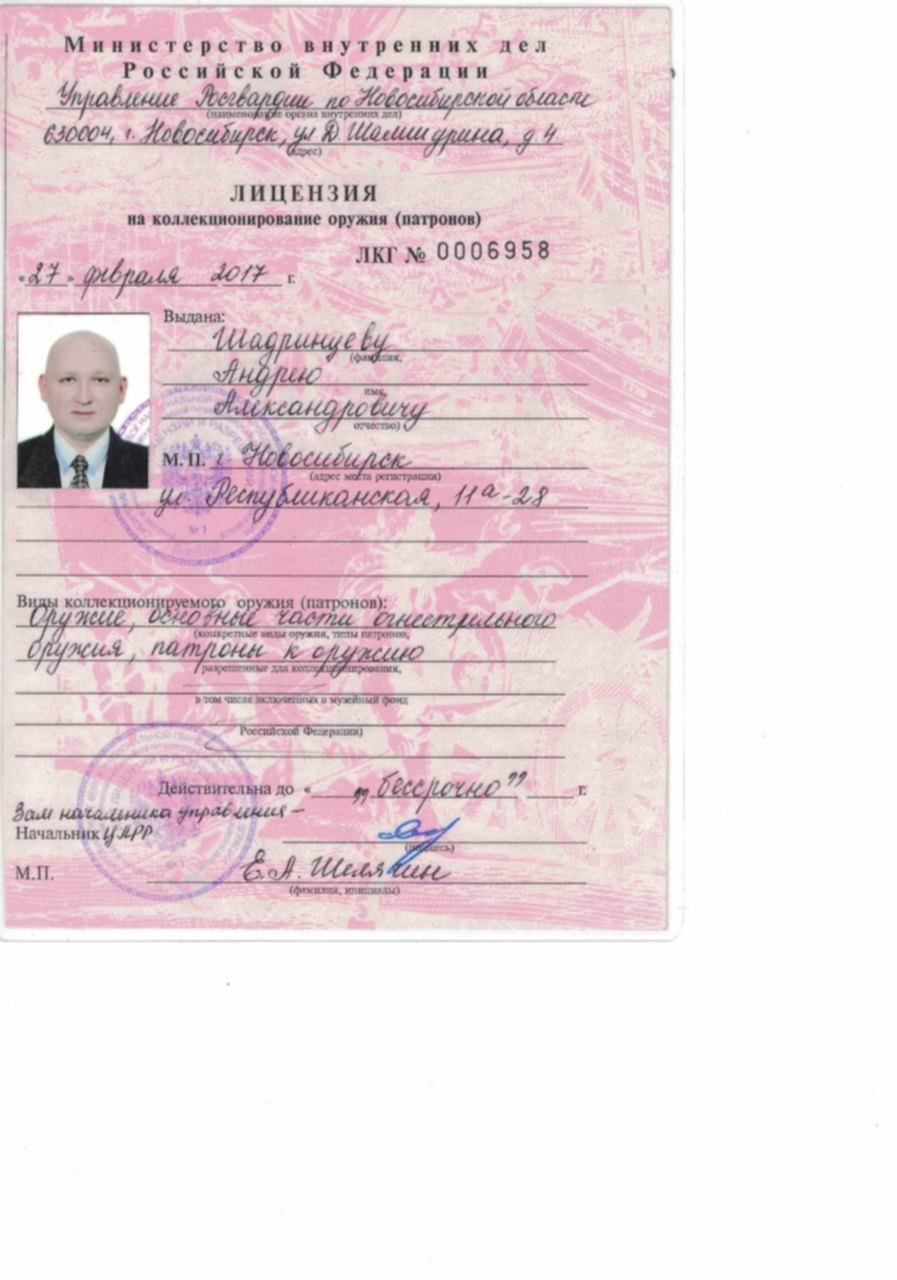 Министерство внутренних дел
Российской Федерации
Управление Росгвардии по Новосибирской области
(наименование органа внутренних дел)
630004, г. Новосибирск, ул Д. Шамшурина, д. 4
(адрес)
ЛИЦЕНЗИЯ
на коллекционирование оружия (патронов)
ЛКГ № 0006958
«27» февраля 2017 г.
Выдана:
Шадринцеву
(фамилия,
Андрею
имя,
Александровичу
отчество)
М.П. г Новосибирск
(адрес места регистрации)
ул. Республиканская, 11а-28
№ 1
Виды коллекционируемого оружия (патронов):
Оружие, основные части огнестрельного
(конкретные виды оружия, типы патронов,
оружия, патроны к оружию
разрешенные для коллекционирования,
в том числе включенных в музейный фонд
Российской Федерации)
Действительна до « „бессрочно” г.
Зам. начальника управления –
Начальник ЦЛРР
(подпись)
М.П. Е.А. Шелякин
(фамилия, инициалы)